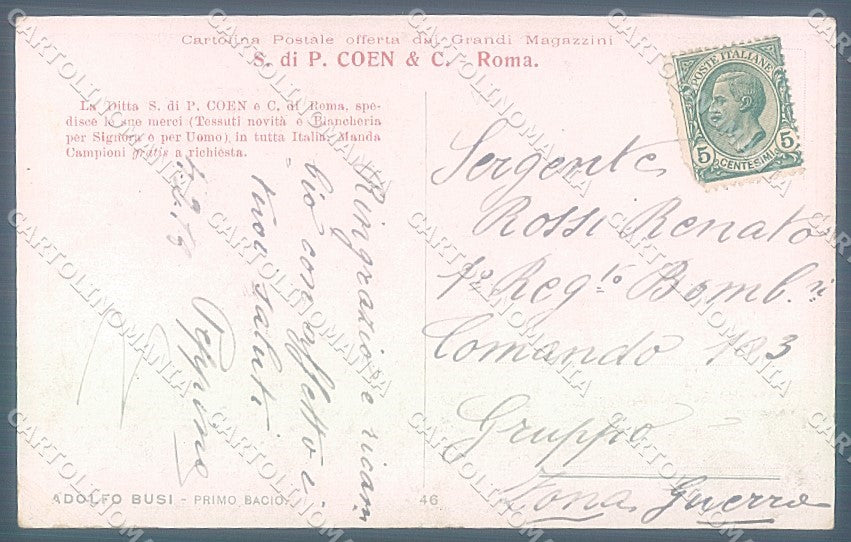 Cartolina Postale offerta dai Grandi Magazzini
S. di P. COEN & C. - Roma.
La Ditta S. di P. COEN e C. di Roma, spe-
disce le sue merci (Tessuti novità e Biancheria
per Signora e per Uomo) in tutta Italia. Manda
Campioni gratis a richiesta.
POSTE ITALIANE
5 5
CENTESIMI
Sergente
Rossi Renato
1º Regto Bomb.ri
Comando 123
Gruppo
Zona Guerra
Ringrazio e ricam
bio con affetto i
tuoi saluti
Peppino
ADOLFO BUSI - PRIMO BACIO.
46
CARTOLINOMANIA